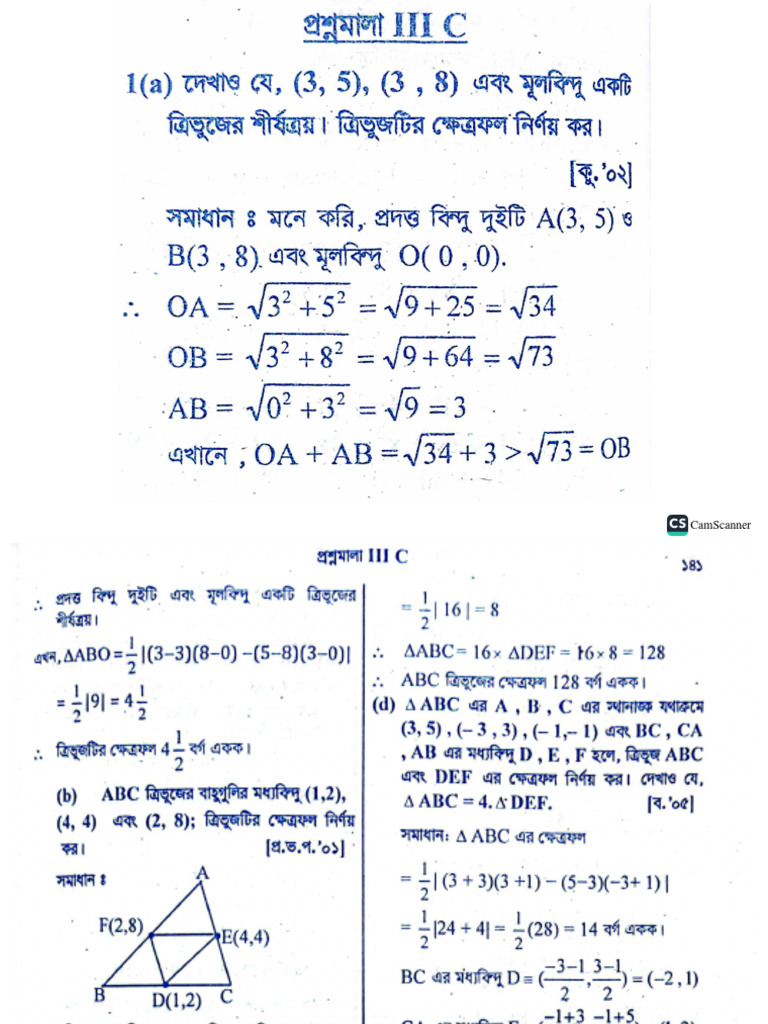 প্রশ্নমালা III C
1(a) দেখাও যে, (3, 5), (3 , 8) এবং মূলবিন্দু একটি
ত্রিভুজের শীর্ষত্রয়। ত্রিভুজটির ক্ষেত্রফল নির্ণয় কর।
[কু.'০২]
সমাধান ঃ মনে করি, প্রদত্ত বিন্দু দুইটি A(3, 5) ও
B(3 , 8) এবং মূলবিন্দু O( 0 , 0).
∴ OA = √(3² + 5²) = √(9 + 25) = √34
OB = √(3² + 8²) = √(9 + 64) = √73
AB = √(0² + 3²) = √9 = 3
এখানে , OA + AB = √34 + 3 > √73 = OB
CS CamScanner
প্রশ্নমালা III C
১৪১
∴ প্রদত্ত বিন্দু দুইটি এবং মূলবিন্দু একটি ত্রিভুজের
শীর্ষত্রয়।
এখন, ΔABO = 1/2 |(3–3)(8–0) –(5–8)(3–0)|
= 1/2 |9| = 4 1/2
∴ ত্রিভুজটির ক্ষেত্রফল 4 1/2 বর্গ একক।
(b) ABC ত্রিভুজের বাহুগুলির মধ্যবিন্দু (1,2),
(4, 4) এবং (2, 8); ত্রিভুজটির ক্ষেত্রফল নির্ণয়
কর। [প্র.ভ.প.'০১]
সমাধান ঃ
A
F(2,8)
E(4,4)
B D(1,2) C
= 1/2 | 16 | = 8
∴ ΔABC = 16 × ΔDEF = 16 × 8 = 128
∴ ABC ত্রিভুজের ক্ষেত্রফল 128 বর্গ একক।
(d) Δ ABC এর A , B , C এর স্থানাঙ্ক যথাক্রমে
(3, 5) , (– 3 , 3) , (– 1,– 1) এবং BC , CA
, AB এর মধ্যবিন্দু D , E , F হলে, ত্রিভুজ ABC
এবং DEF এর ক্ষেত্রফল নির্ণয় কর। দেখাও যে,
Δ ABC = 4. Δ DEF. [ব.'০৫]
সমাধান: Δ ABC এর ক্ষেত্রফল
= 1/2 | (3 + 3)(3 +1) – (5–3)(–3+ 1) |
= 1/2 |24 + 4| = 1/2 (28) = 14 বর্গ একক।
BC এর মধ্যবিন্দু D ≡ ((–3–1)/2 , (3–1)/2) = (–2 , 1)